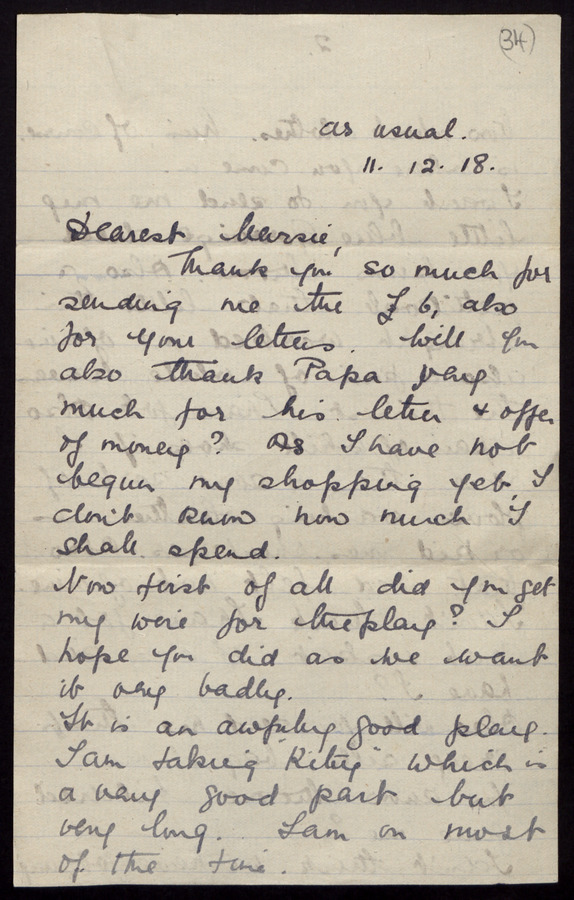 (34)
as usual.
11. 12. 18.
Dearest Mursie,
Thank you so much for
sending me the £6, also
for your letters. Will you
also thank Papa very
much for his letter & offer
of money? As I have not
begun my shopping yet, I
don't know how much I
shall spend.
Now first of all did you get
my wire for the play? I
hope you did as we want
it very badly.
It is an awfully good play.
I am taking "Kitty" which is
a very good part but
very long. I am on most
of the time.